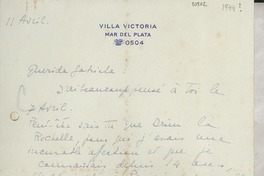 11 Avril.
VILLA VICTORIA
MAR DEL PLATA
☎ 0504
1944?
Querida Gabriela:
J'ai beaucoup pensé à toi le
7 Avril.
Peut-être sais tu que Drieu la
Rochelle, pour qui j'avais une
affection et que je
connaissais depuis 14 ans,